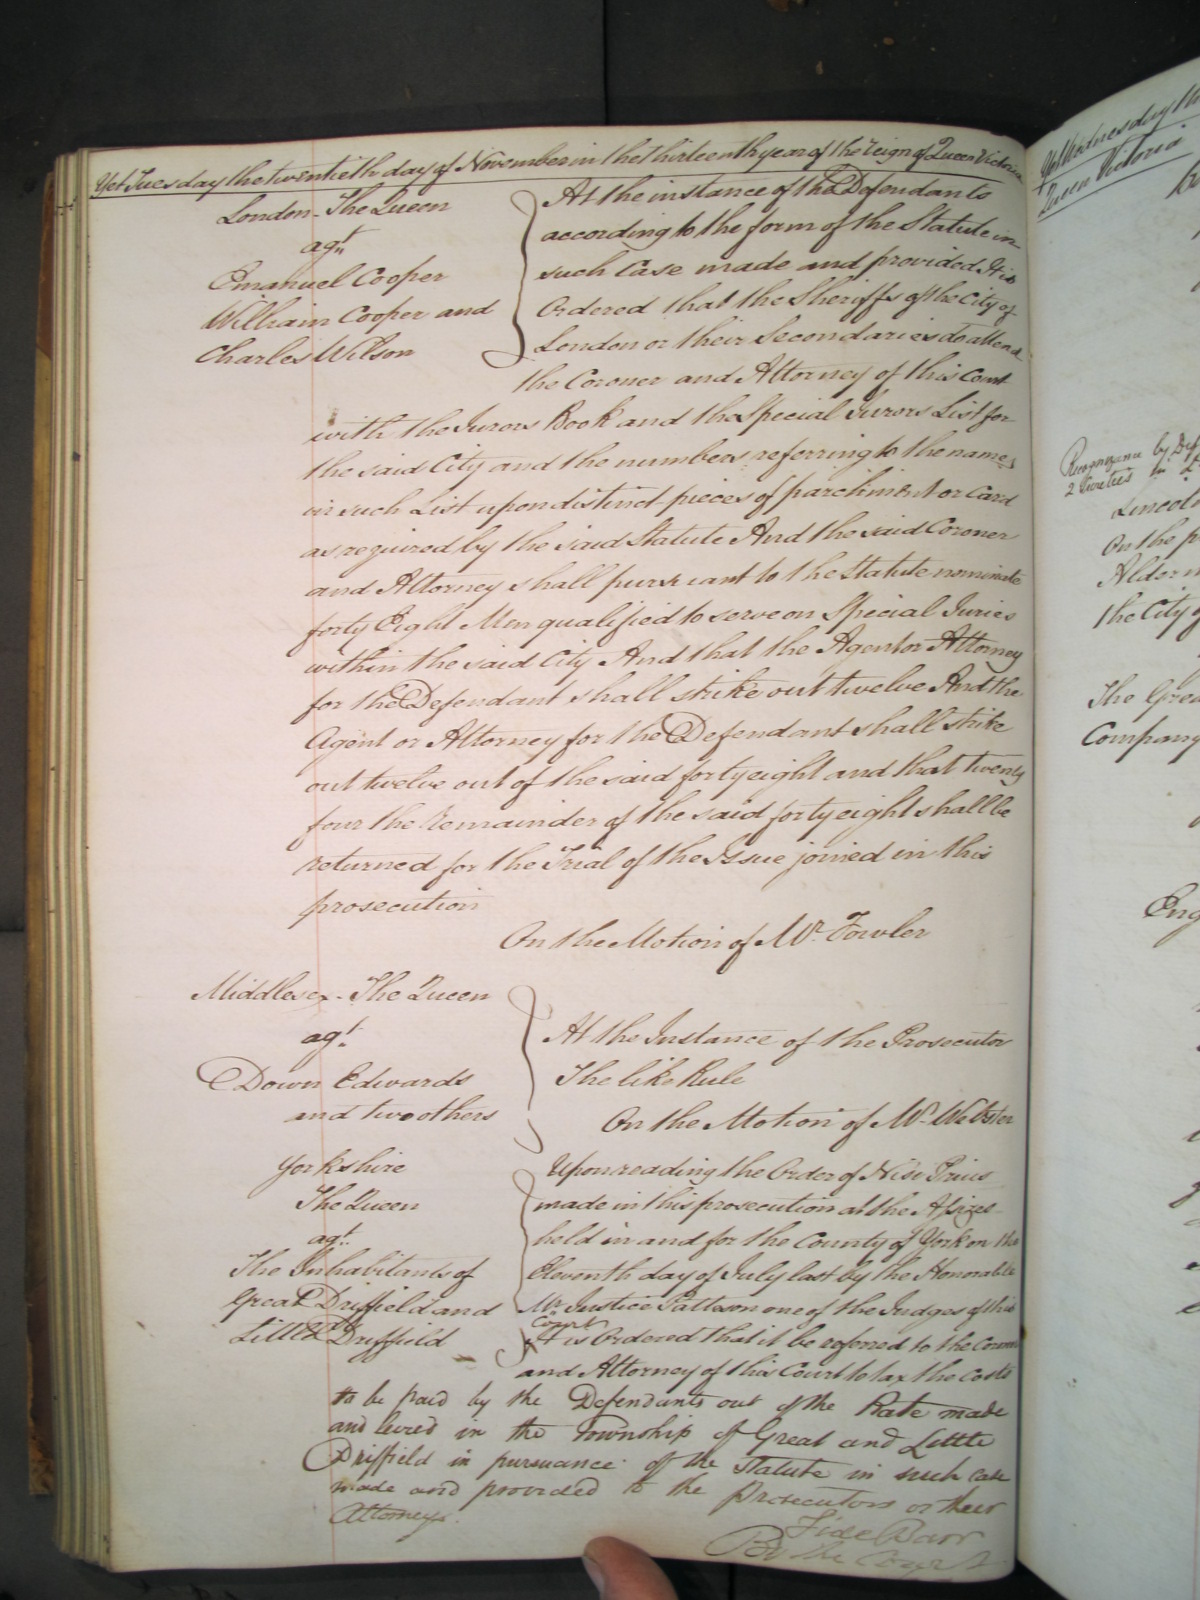 Yet Tuesday the twentieth day of November in the thirteenth year of the reign of Queen Victoria
London - The Queen
agt.
Emanuel Cooper
William Cooper and
Charles Wilson
At the instance of the Defendants
according to the form of the Statute in
such Case made and provided It is
Ordered that the Sheriffs of the City of
London or their Secondaries do attend
the Coroner and Attorney of this Court
with the Jurors Book and the Special Jurors List for
the said City and the numbers referring to the names
in such List upon distinct pieces of parchment or card
as required by the said Statute And the said Coroner
and Attorney shall pursuant to the Statute nominate
forty Eight Men qualified to serve on Special Juries
within the said City And that the Agent or Attorney
for the Defendant shall strike out twelve And the
Agent or Attorney for the Defendant shall strike
out twelve out of the said forty eight and that twenty
four the remainder of the said forty eight shall be
returned for the Trial of the Issue joined in this
prosecution
On the Motion of Mr. Fowler
Middlesex - The Queen
agt.
Down Edwards
and two others
At the Instance of the Prosecutor
The like Rule
On the Motion of Mr. Webster
Yorkshire
The Queen
agt.
The Inhabitants of
Great Driffield and
Little Driffield
Upon reading the Order of Nisi Prius
made in this prosecution at the Assizes
held in and for the County of York on the
Eleventh day of July last by the Honorable
Mr. Justice Patteson one of the Judges of this
Court
It is Ordered that it be referred to the Coroner
and Attorney of this Court to tax the costs
to be paid by the Defendants out of the Rate made
and levied in the Township of Great and Little
Driffield in pursuance of the Statute in such case
made and provided to the Prosecutors or their
Attorneys.
Side Barr
By the Court
Yet Wednesday the
Queen Victoria
Recognizance by Def
2 Sureties in
Lincoln
On the p
Alderm
the City of
The Grea
Company
Eng